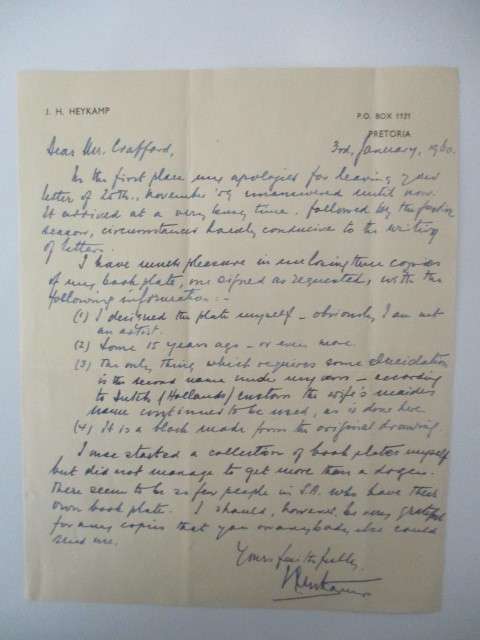 J. H. HEYKAMP
P.O. BOX 1121
PRETORIA
Dear Mr. Crafford,
3rd, January, 1960.
In the first place my apologies for leaving your
letter of 26th., November '59 unanswered until now.
It arrived at a very busy time, followed by the festive
season, circumstances hardly conducive to the writing
of letters.
I have much pleasure in enclosing three copies
of my book plate, one signed as requested, with the
following information:-
(1) I designed the plate myself - obviously I am not
an artist.
(2) Some 15 years ago - or even more
(3) The only thing which requires some elucidation
is the second name under my own - according
to Dutch (Hollands) custom the wife's maiden
name continues to be used, as is done here
(4) It is a block made from the original drawing.
I once started a collection of book plates myself
but did not manage to get more than a dozen.
There seem to be so few people in S.A. who have their
own book plate. I should, however, be very grateful
for any copies that you or anybody else could
send me.
Yours faithfully,